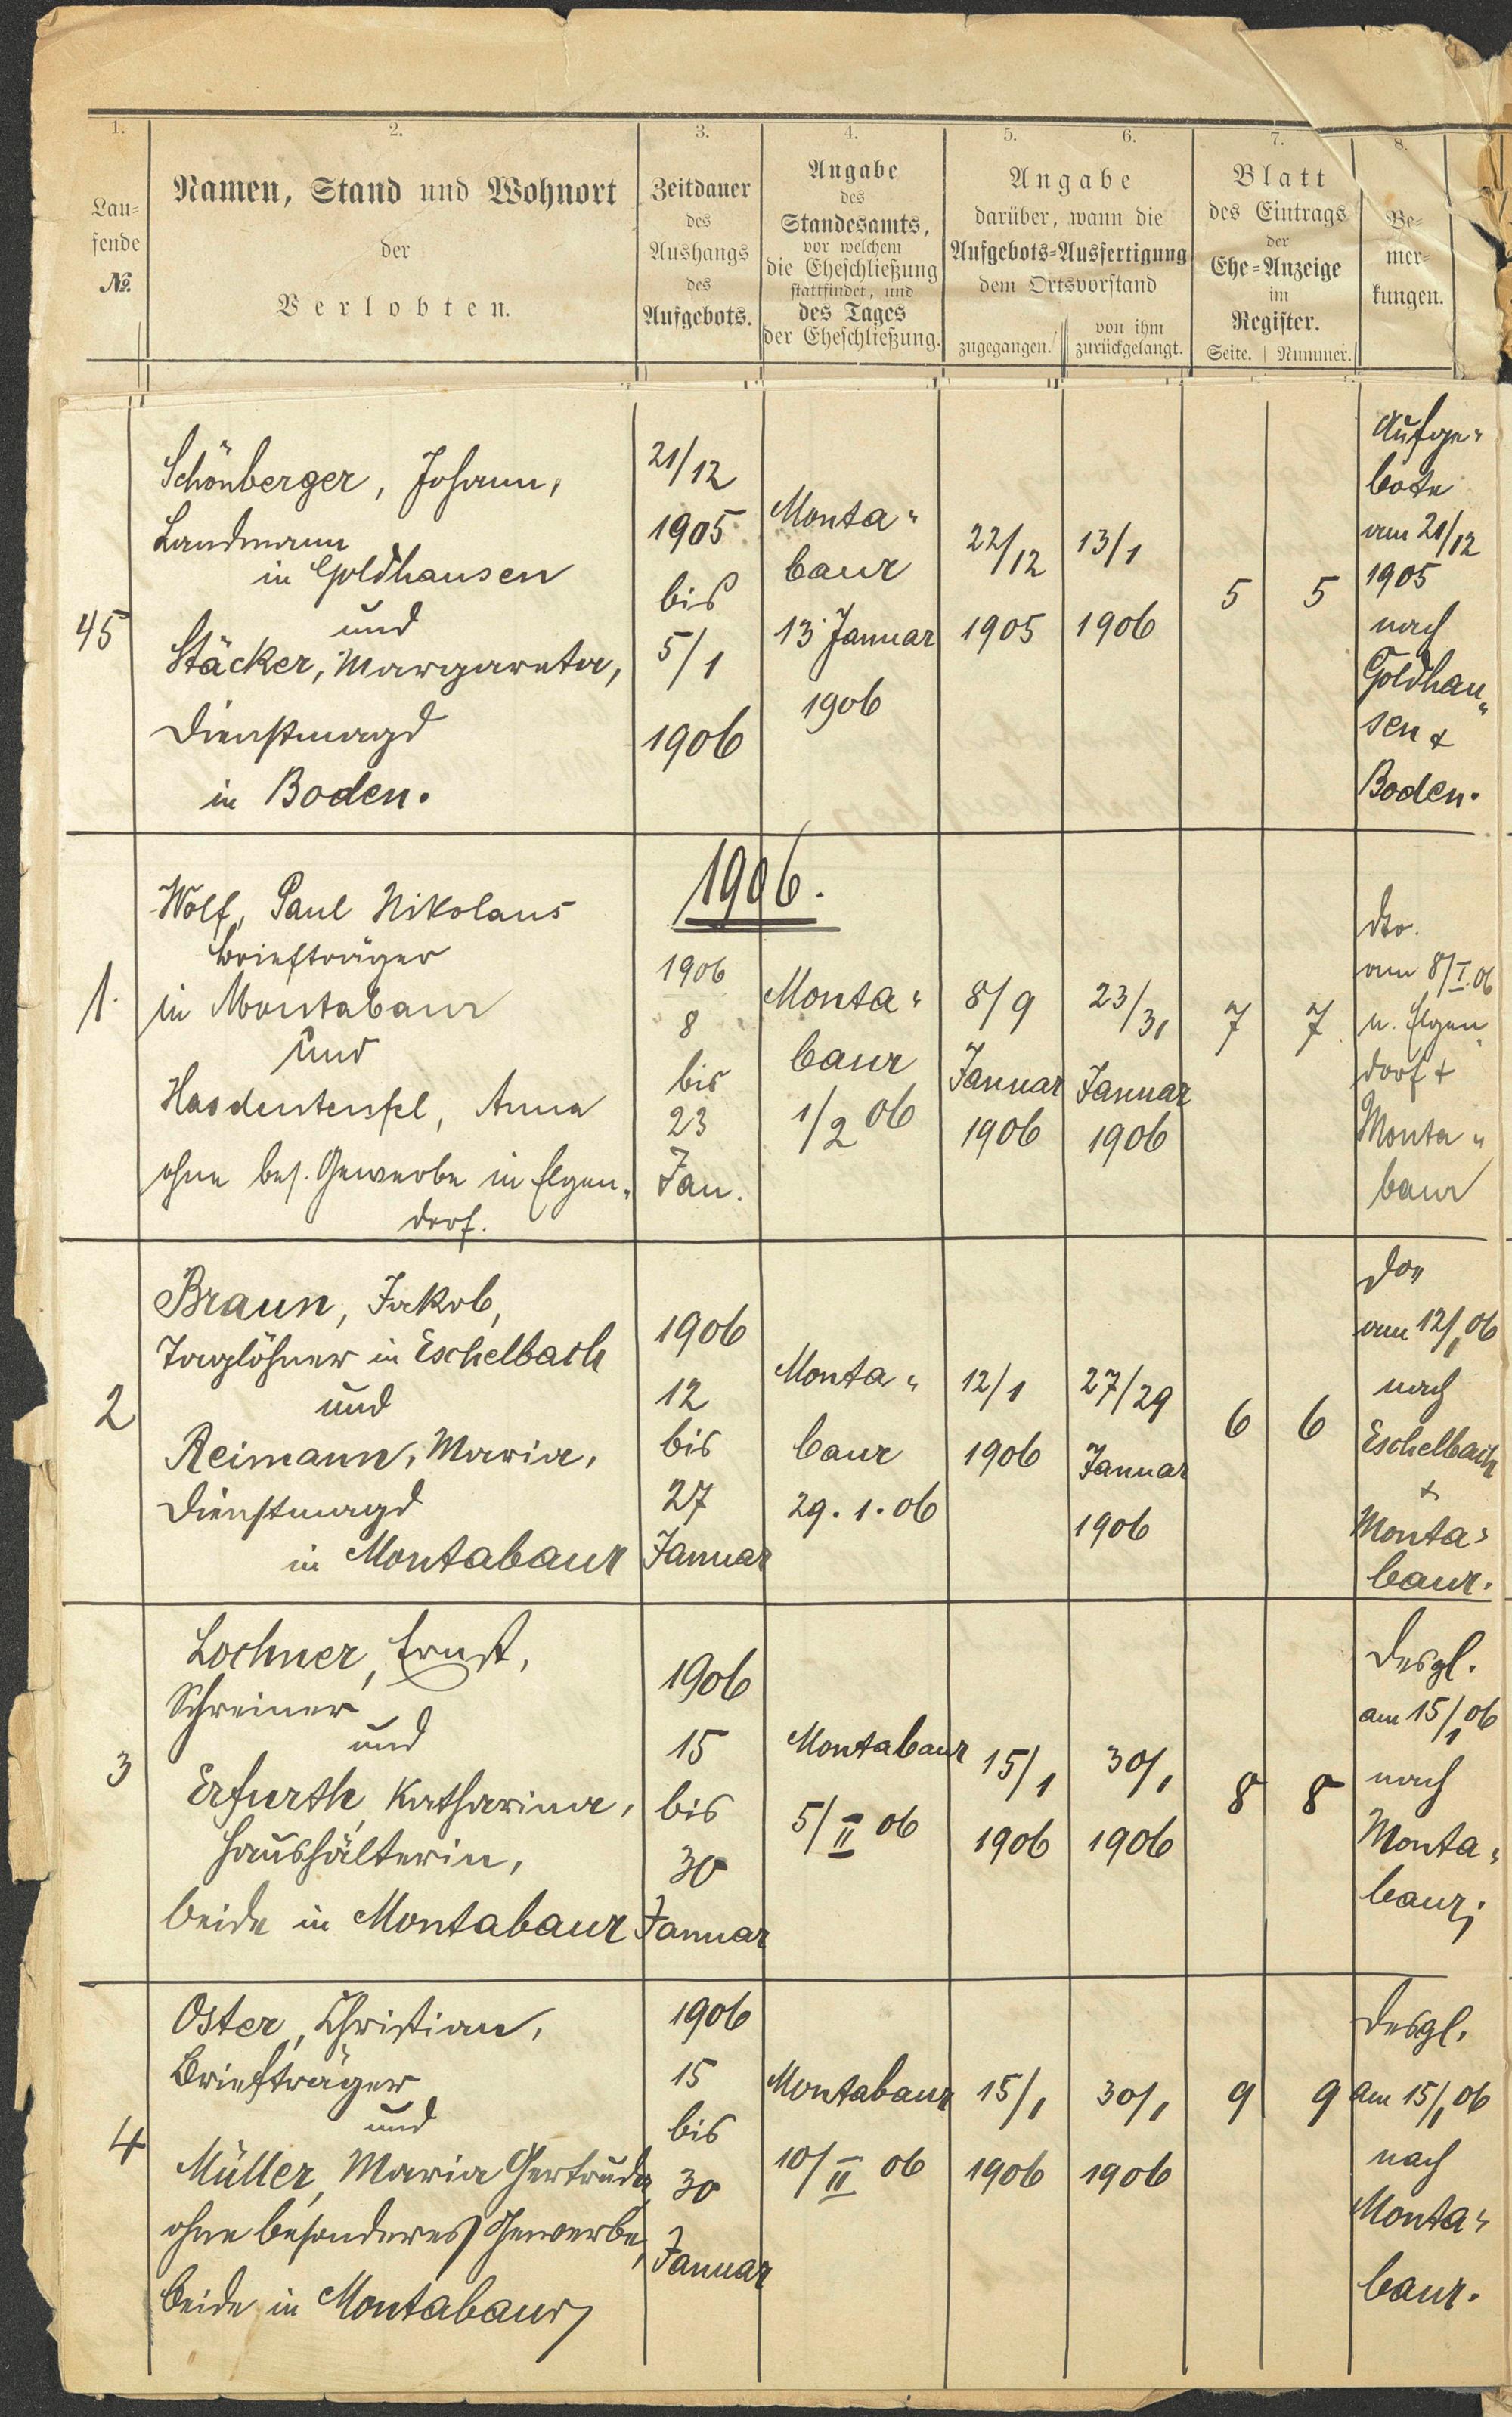 1.
Lau-
fende
No.
2.
Namen, Stand und Wohnort
der
Verlobten.
3.
Zeitdauer
des
Aushangs
des
Aufgebots.
4.
Angabe
des
Standesamts,
vor welchem
die Eheschließung
stattfindet, und
des Tages
der Eheschließung.
5.
6.
Angabe
darüber, wann die
Aufgebots-Ausfertigung
dem Ortsvorstand
zugegangen.
von ihm
zurückgelangt.
7.
Blatt
des Eintrags
der
Ehe-Anzeige
im
Register.
Seite. Nummer.
8.
Be-
mer-
kungen.
45
Schönberger, Johann,
Landmann
in Goldhausen
und
Stäcker, Margareta,
Dienstmagd
in Boden.
21/12
1905
bis
5/1
1906
Monta-
baur
13 Januar
1906
22/12
1905
13/1
1906
5
5
Aufge-
bote
am 21/12
1905
nach
Goldhau-
sen &
Boden.
1906.
1.
Wolf, Paul Nikolaus
Briefträger
in Montabaur
und
Hasdenteufel, Anna
ohne bes. Gewerbe in Elgen-
dorf.
1906
8
bis
23
Jan.
Monta-
baur
1/2 06
8/9
Januar
1906
23/31
Januar
1906
7
7
dto.
am 8/I.06
n. Elgen-
dorf &
Monta-
baur
2
Braun, Jakob,
Taglöhner in Eschelbach
und
Reimann, Maria,
Dienstmagd
in Montabaur
1906
12
bis
27
Januar
Monta-
baur
29.1.06
12/1
1906
27/29
Januar
1906
6
6
am 12/1 06
nach
Eschelbach
&
Monta-
baur.
3
Lochner, Ernst,
Schreiner
und
Erfurth, Katharina,
Haushälterin,
beide in Montabaur
1906
15
bis
30
Januar
Montabaur
5/II 06
15/1
1906
30/1
1906
8
8
Desgl.
am 15/1 06
nach
Monta-
baur;
4
Oster, Christian,
Briefträger
und
Müller, Maria Gertruda,
ohne besonderes Gewerbe,
beide in Montabaur
1906
15
bis
30
Januar
Montabaur
10/II 06
15/1
1906
30/1
1906
9
9
Desgl.
am 15/1 06
nach
Monta-
baur.